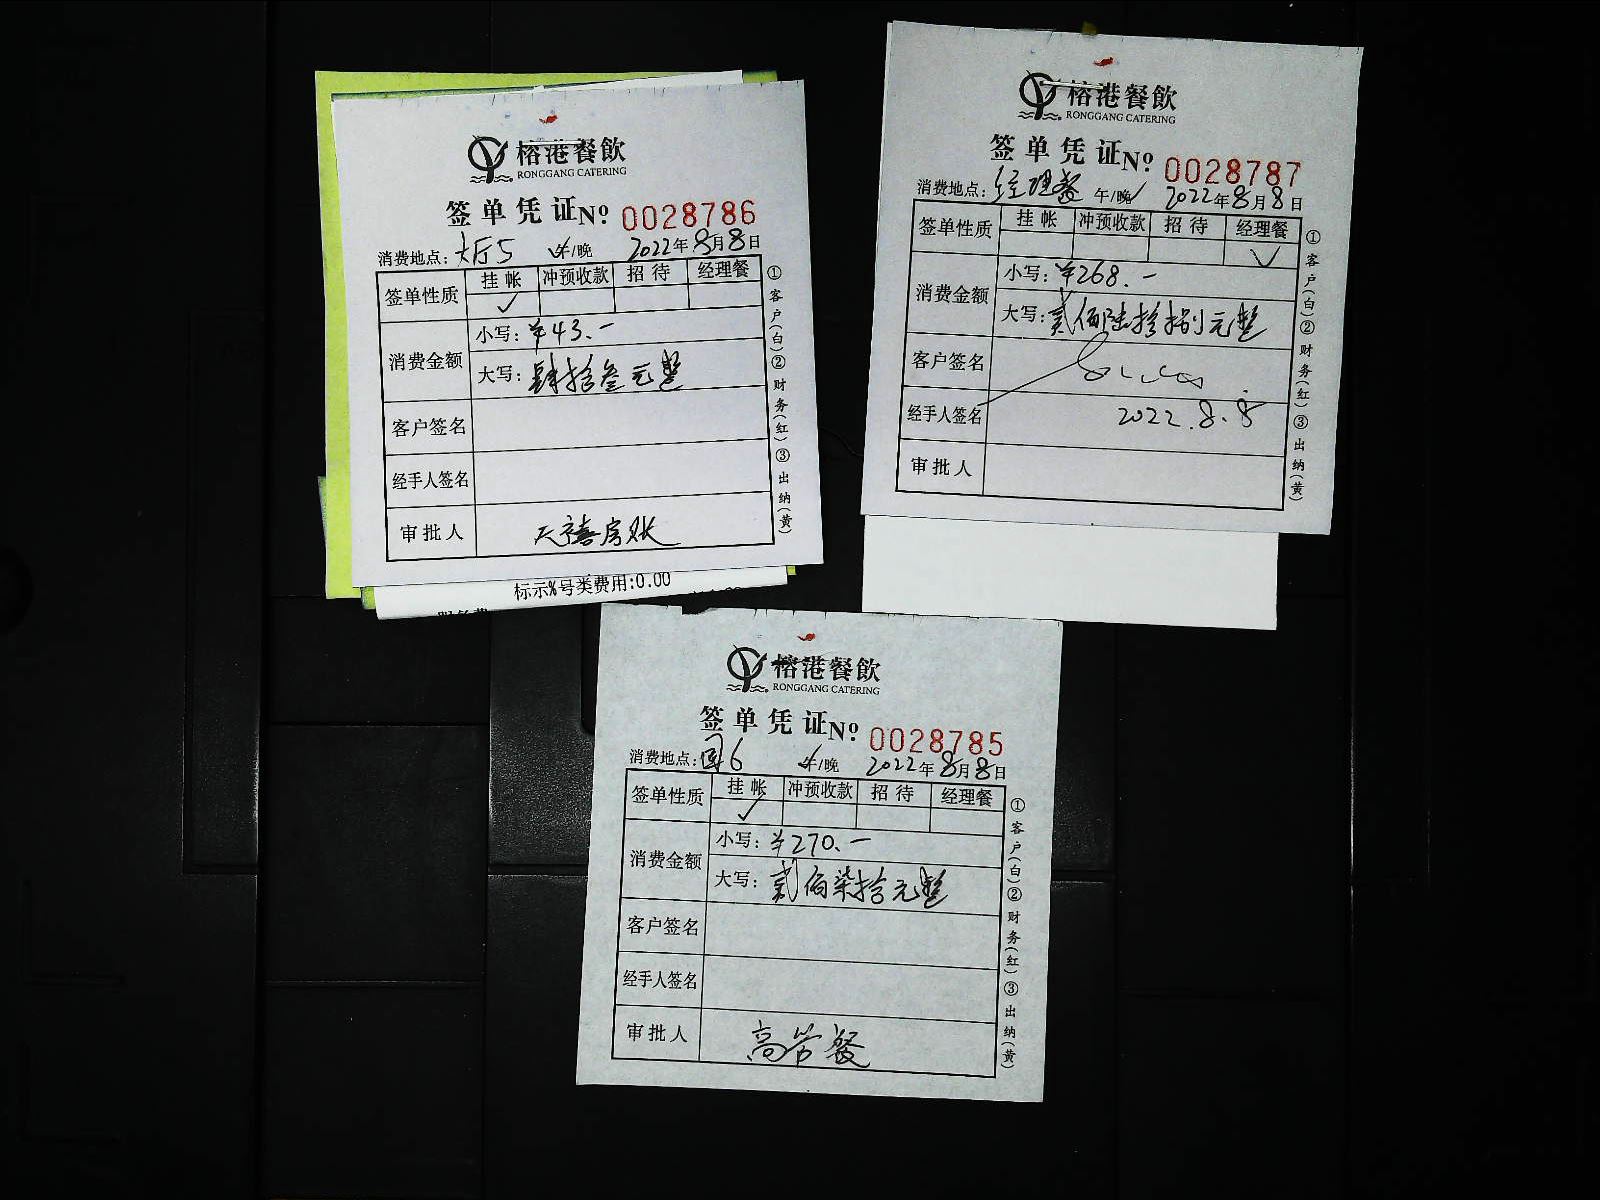 榕港餐飲
RONGGANG CATERING
签单凭证 Nº 0028786
消费地点: 大厅5 午/晚 2022年8月8日
签单性质 挂帐 冲预收款 招待 经理餐
✓
消费金额 小写: ¥43.-
大写: 肆拾叁元整
客户签名
经手人签名
审批人 天禧房账
①客户(白)②财务(红)③出纳(黄)
标示%号类费用:0.00
榕港餐飲
RONGGANG CATERING
签单凭证 Nº 0028787
消费地点: 经理餐 午/晚 2022年8月8日
签单性质 挂帐 冲预收款 招待 经理餐
✓
消费金额 小写: ¥268.-
大写: 贰佰陆拾捌元整
客户签名
经手人签名 2022.8.8
审批人
①客户(白)②财务(红)③出纳(黄)
榕港餐飲
RONGGANG CATERING
签单凭证 Nº 0028785
消费地点: 国6 午/晚 2022年8月8日
签单性质 挂帐 冲预收款 招待 经理餐
✓
消费金额 小写: ¥270.-
大写: 贰佰柒拾元整
客户签名
经手人签名
审批人 高管餐
①客户(白)②财务(红)③出纳(黄)